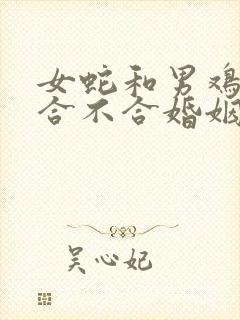 女蛇和男鸡
合不合婚姻
吴心妃